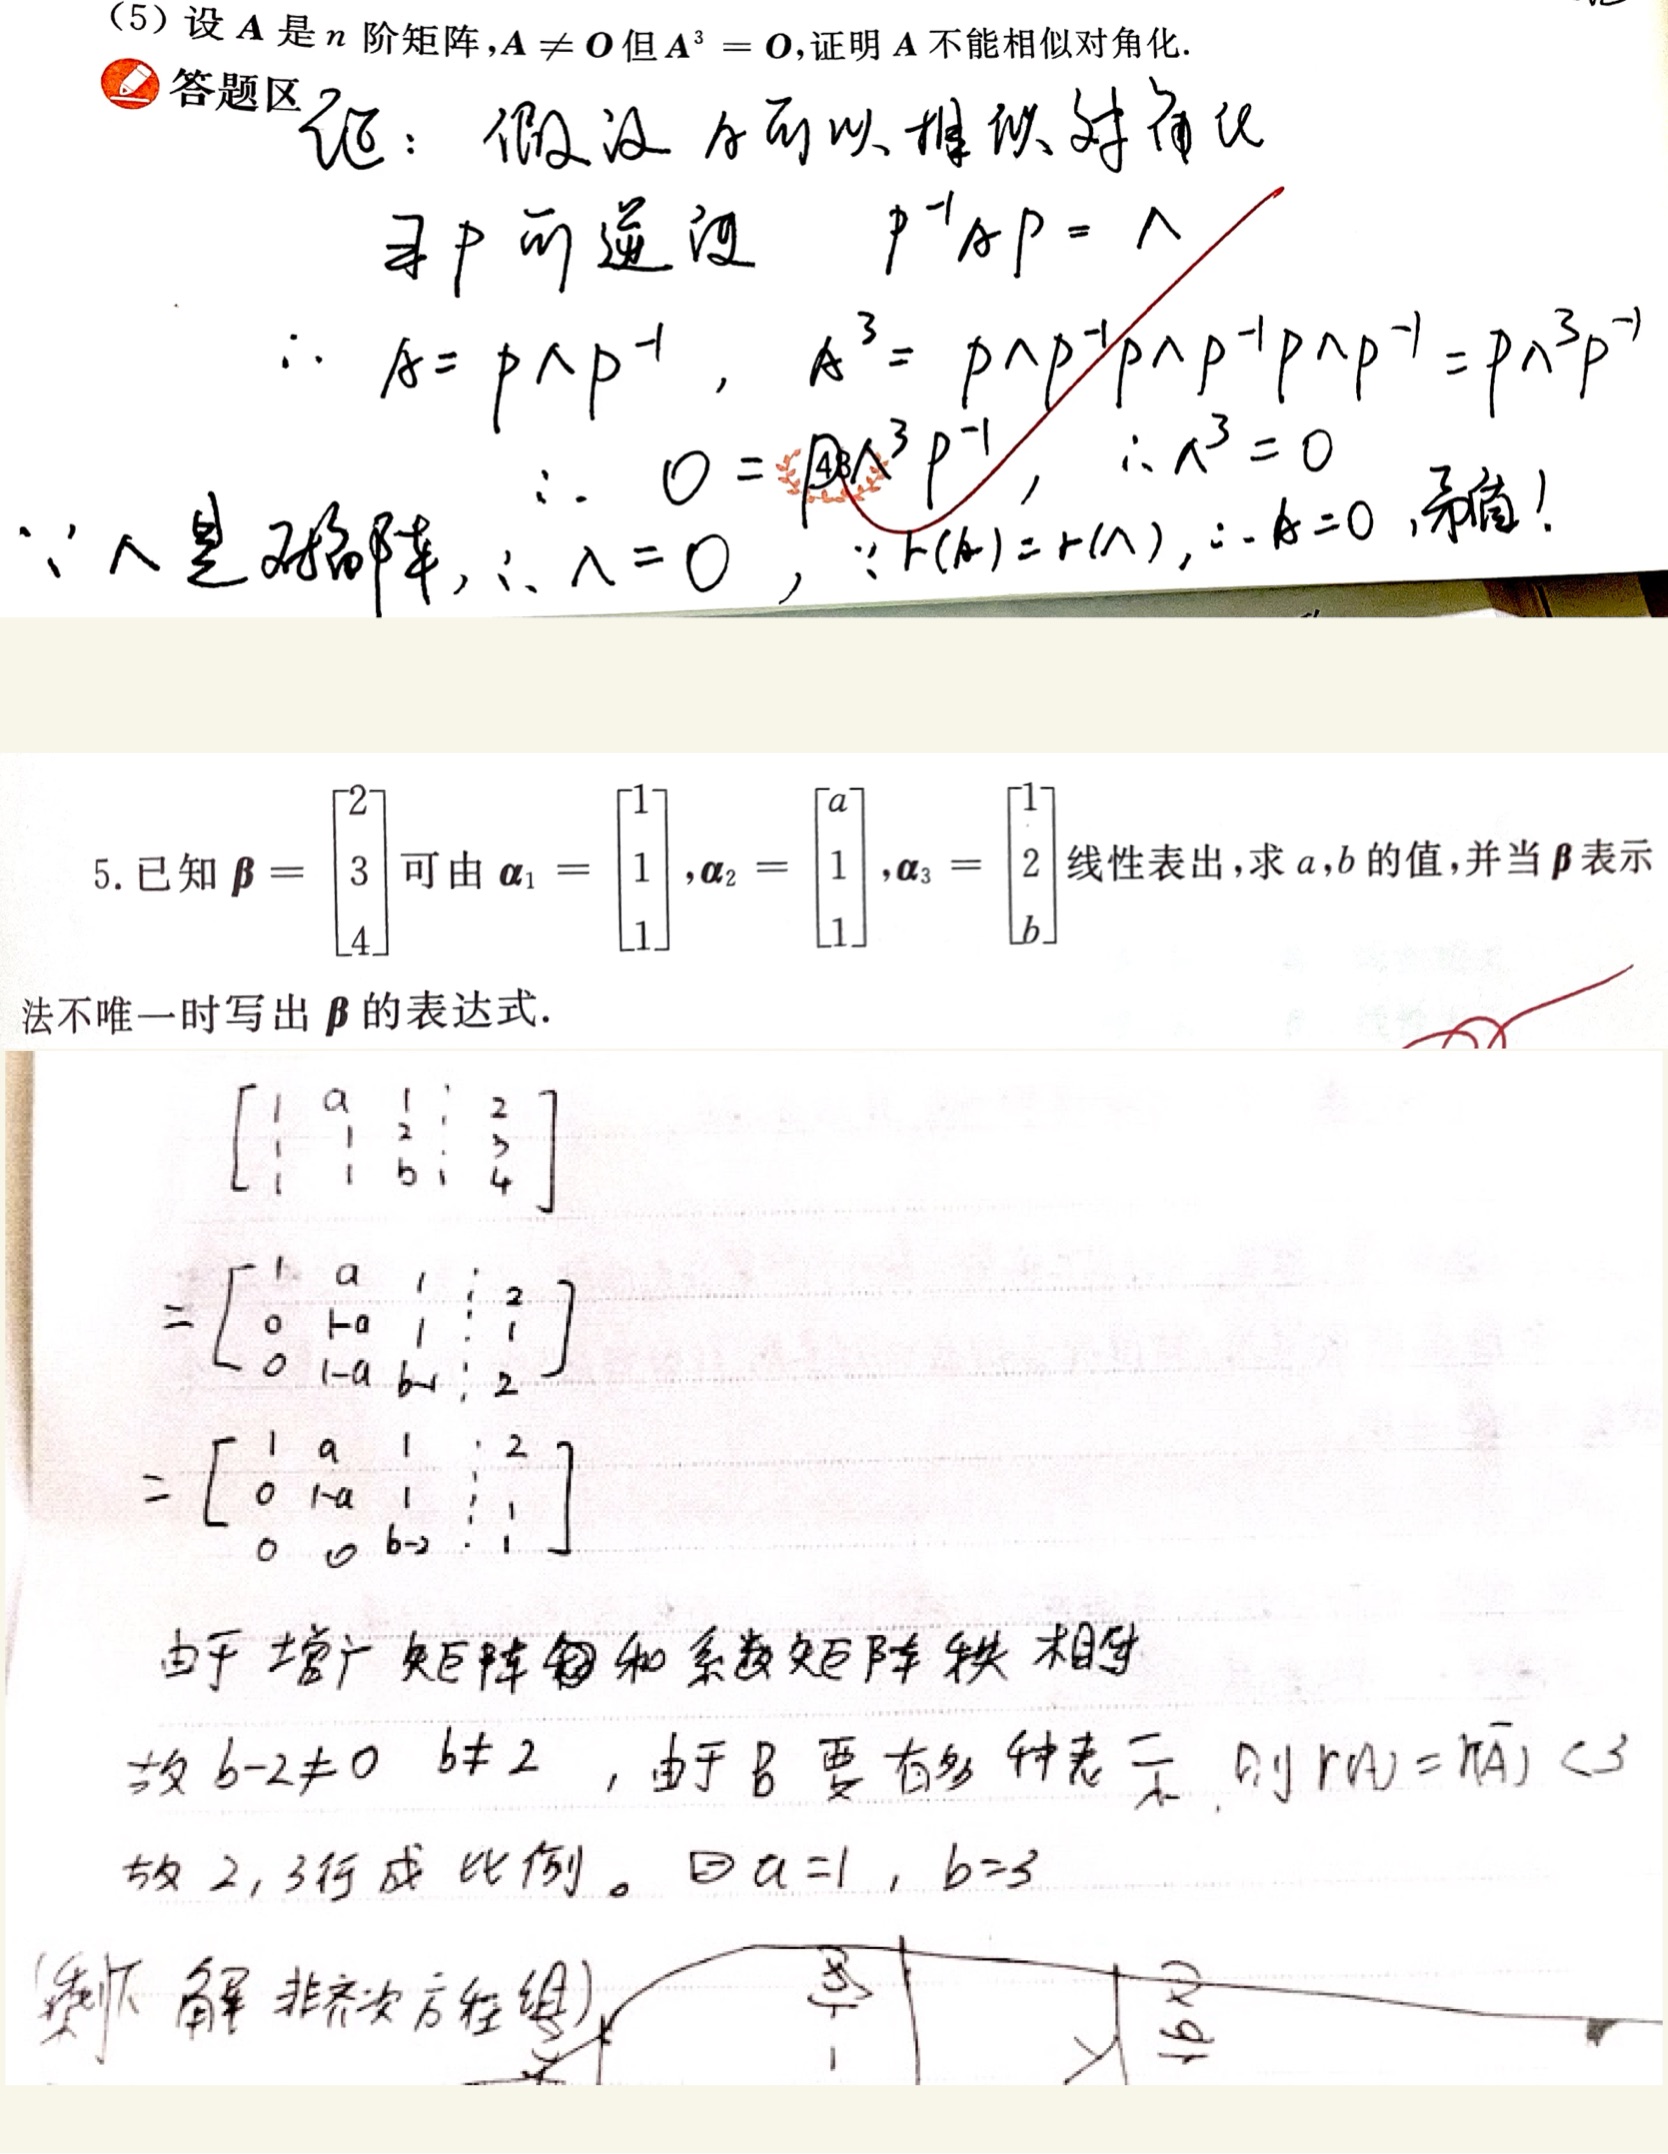 (5) 设 A 是 n 阶矩阵,A ≠ O 但 A³ = O,证明 A 不能相似对角化.
答题区
证: 假设 A 可以相似对角化
寻 P 可逆使 P⁻¹AP = Λ
∴ A = PΛP⁻¹ , A³ = PΛP⁻¹PΛP⁻¹PΛP⁻¹ = PΛ³P⁻¹
∴ 0 = PΛ³P⁻¹ , ∴ Λ³ = 0
∵ Λ 是对角阵, ∴ Λ = 0 , ∵ r(A) = r(Λ), ∴ A = 0 , 矛盾!
5. 已知 β = [2 3 4] 可由 α₁ = [1 1 1], α₂ = [a 1 1], α₃ = [1 2 b] 线性表出,求 a,b 的值,并当 β 表示
法不唯一时写出 β 的表达式.
[ 1 a 1 ⋮ 2
1 1 2 ⋮ 3
1 1 b ⋮ 4 ]
= [ 1 a 1 ⋮ 2
0 1-a 1 ⋮ 1
0 1-a b-1 ⋮ 2 ]
= [ 1 a 1 ⋮ 2
0 1-a 1 ⋮ 1
0 0 b-2 ⋮ 1 ]
由于增广矩阵和系数矩阵秩相等
故 b-2≠0 b≠2 , 由于 β 要有多种表示, 则 r(A) = r(Ā) <3
故 2, 3行成比例。 a=1 , b=3
(剩下 解非齐次方程组)